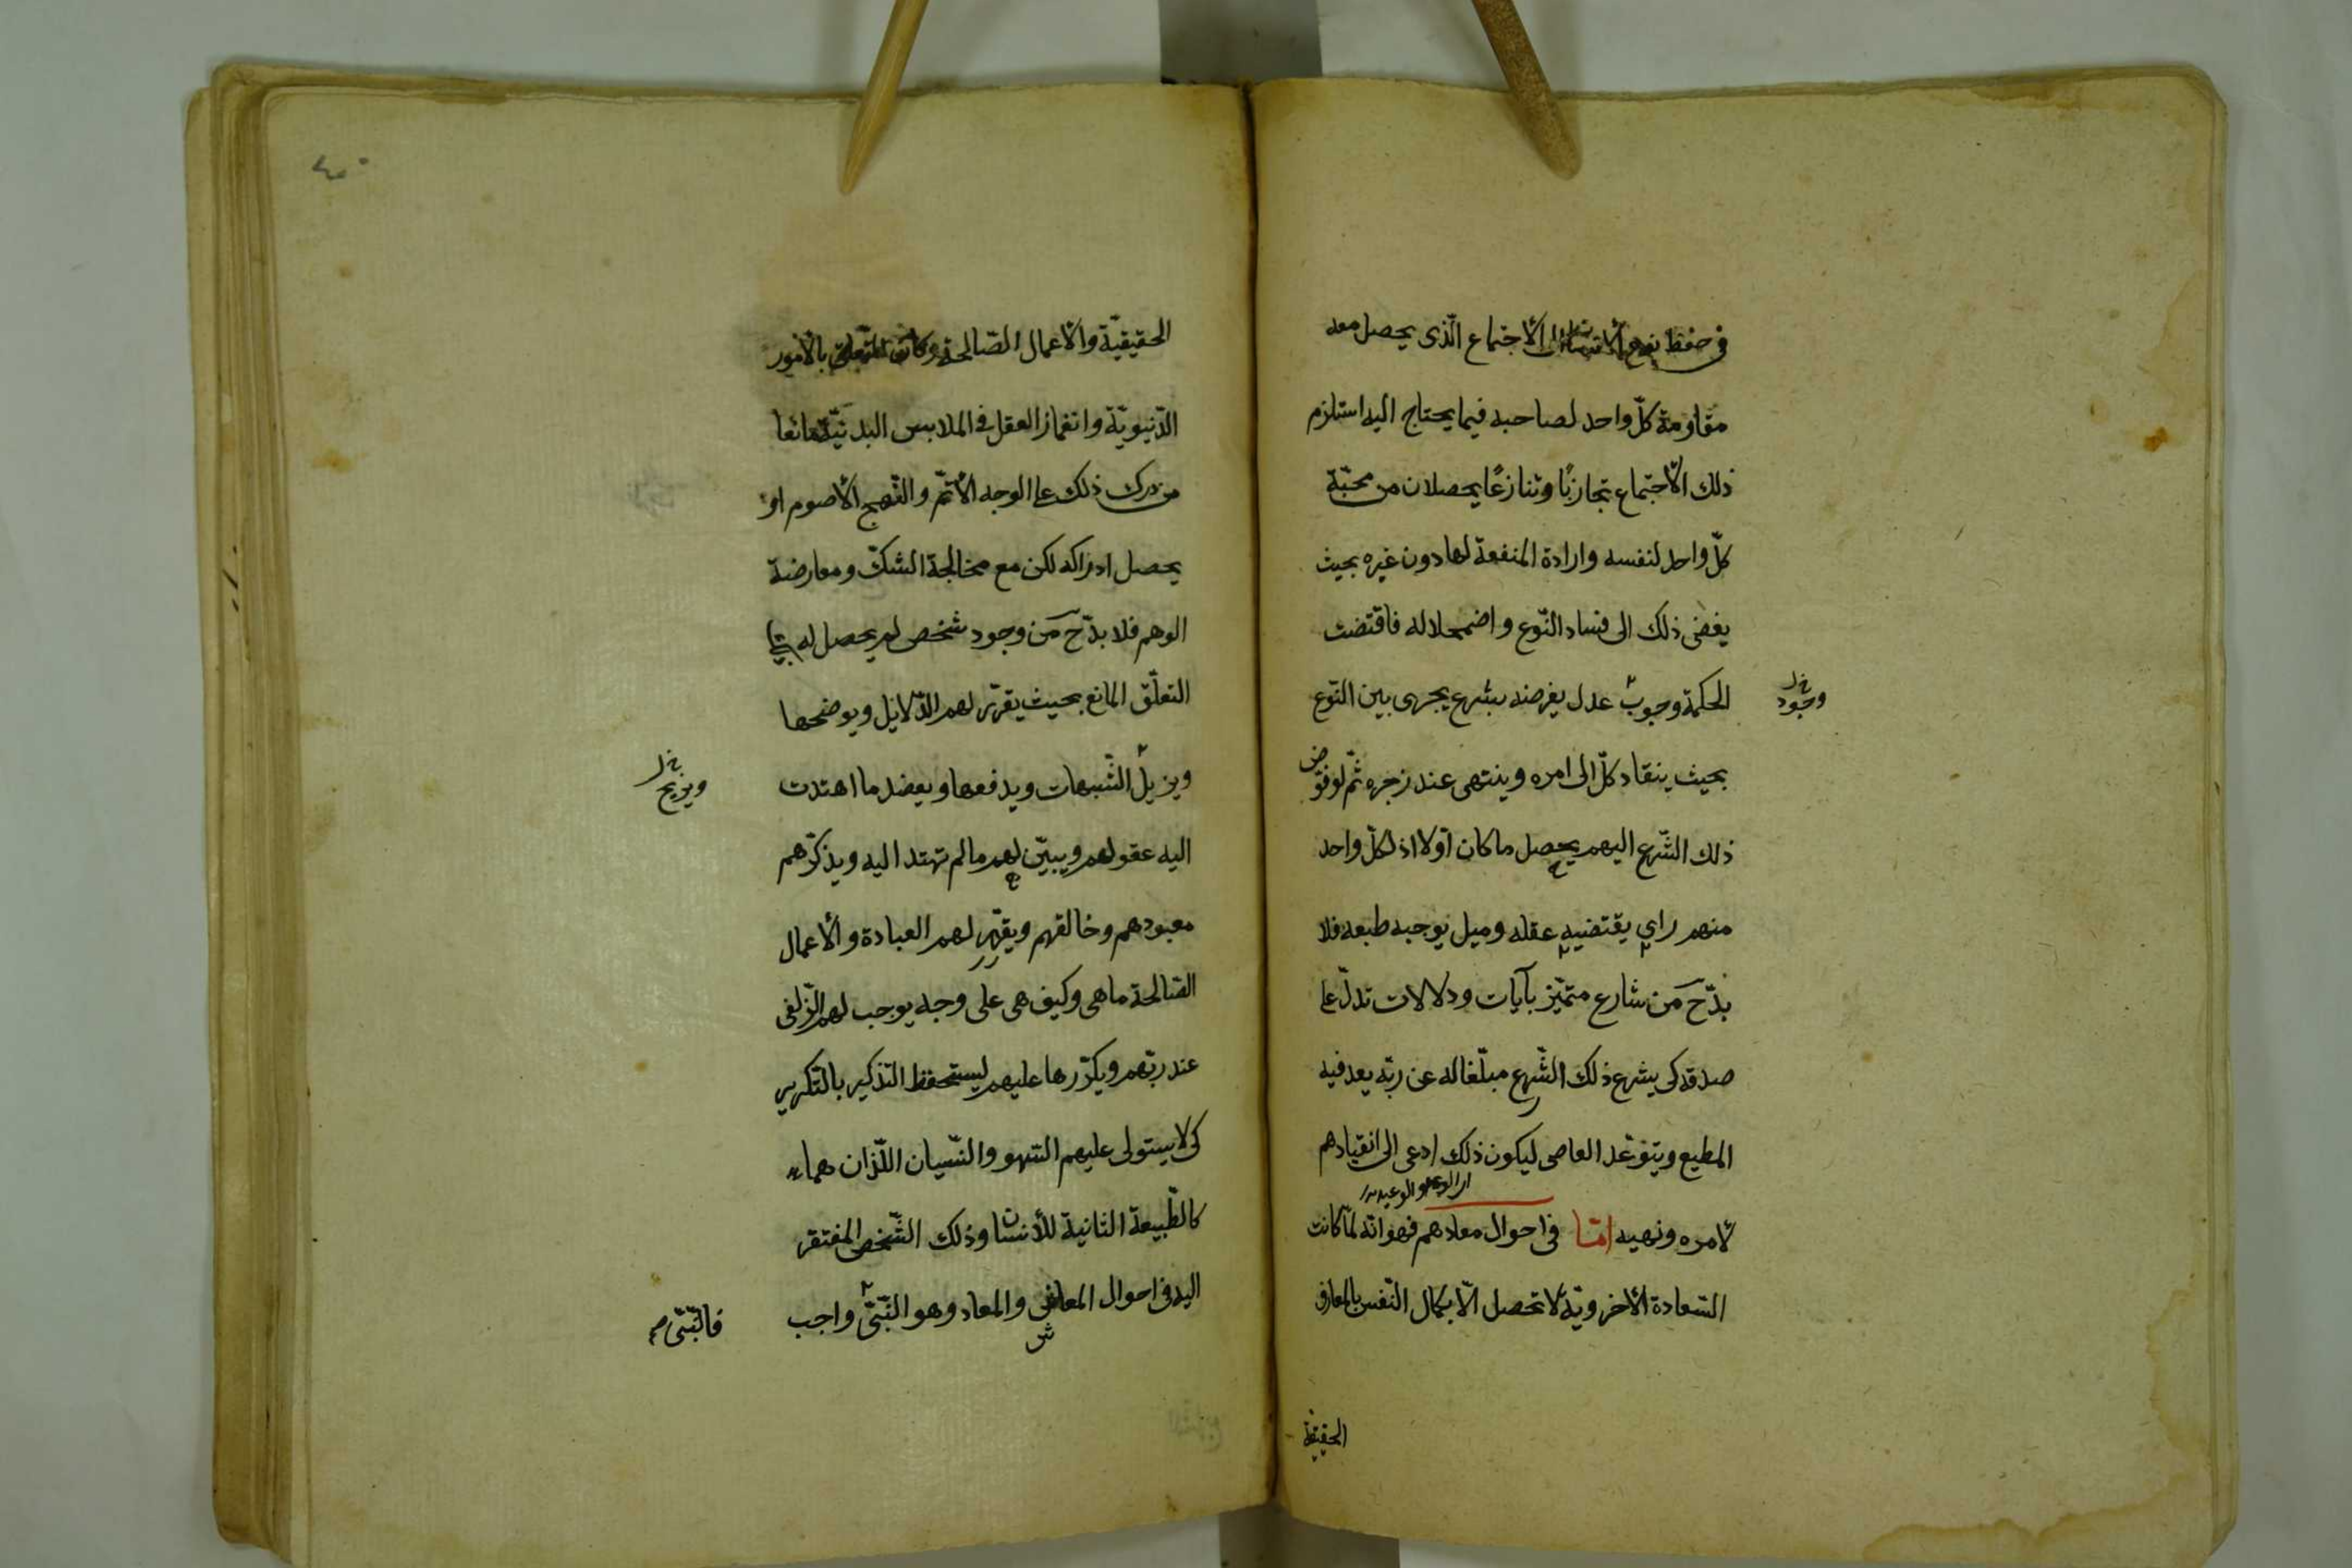 في حفظ نوع الانسان الاجتماع الّذى يحصل معه
مقاومة كلّ واحد لصاحبه فيما يحتاج اليه استلزم
ذلك الأجتماع تجاذبًا وتنازعًا يحصلان من محبّة
كلّ واحد لنفسه وارادة المنفعة لها دون غيره بحيث
يفضى ذلك الى فساد النّوع واضمحلاله فاقتضت
الحكمة وجوب عدل يفرضه بشرع يجرى بين النّوع
وجود خ ل
بحيث ينقاد كلّ الى امره وينتهى عند زجره ثمّ لو فوّض
ذلك الشّرع اليهم يحصل ما كان اوّلا اذ لكلّ واحد
منهم راي يقتضيه عقله وميل يوجبه طبعه فلا
بدّ ح من شارع متميّز بآيات ودلالات تدلّ على
صدقه كى يشرع ذلك الشّرع مبلّغا له عن ربّه يعد فيه
المطيع ويتوعّد العاصى ليكون ذلك ادعى الى انقيادهم
اى الوعد والوعيد
لأمره ونهيه امّا فى احوال معادهم فهو انّه لمّا كانت
السّعادة الأخرويّة لا تحصل الّا بكمال النّفس بالمعارف
الحقيقيّة
٤٠
الحقيقيّة والأعمال الصّالحة وكان التعلق بالأمور
الدّنيويّة وانغماز العقل فى الملابس البدنيّة مانعا
من درك ذلك على الوجه الأتمّ والنّهج الأصوم او
يحصل ادراكه لكن مع مخالجة الشكّ ومعارضة
الوهم فلا بدّ ح من وجود شخص لم يحصل له
التعلّق المانع بحيث يقرّر لهم الدّلايل ويوضحها
ويزيل الشّبهات ويدفعها ويعضد ما اهتدت
ويزيح خ ل
اليه عقولهم ويبيّن لهم ما لم تهتد اليه ويذكّرهم
معبودهم وخالقهم ويقرّر لهم العبادة والأعمال
الصّالحة ما هى وكيف هى على وجه يوجب لهم الزّلفى
عند ربّهم ويكرّرها عليهم ليستحفظ التّذكير بالتّكرير
كى لا يستولى عليهم السّهو والنّسيان اللّذان هما
كالطّبيعة الثانية للأنسان وذلك الشّخص المفتقر
اليه فى احوال المعاش والمعاد وهو النّبىّ واجب
فالنّبىّ